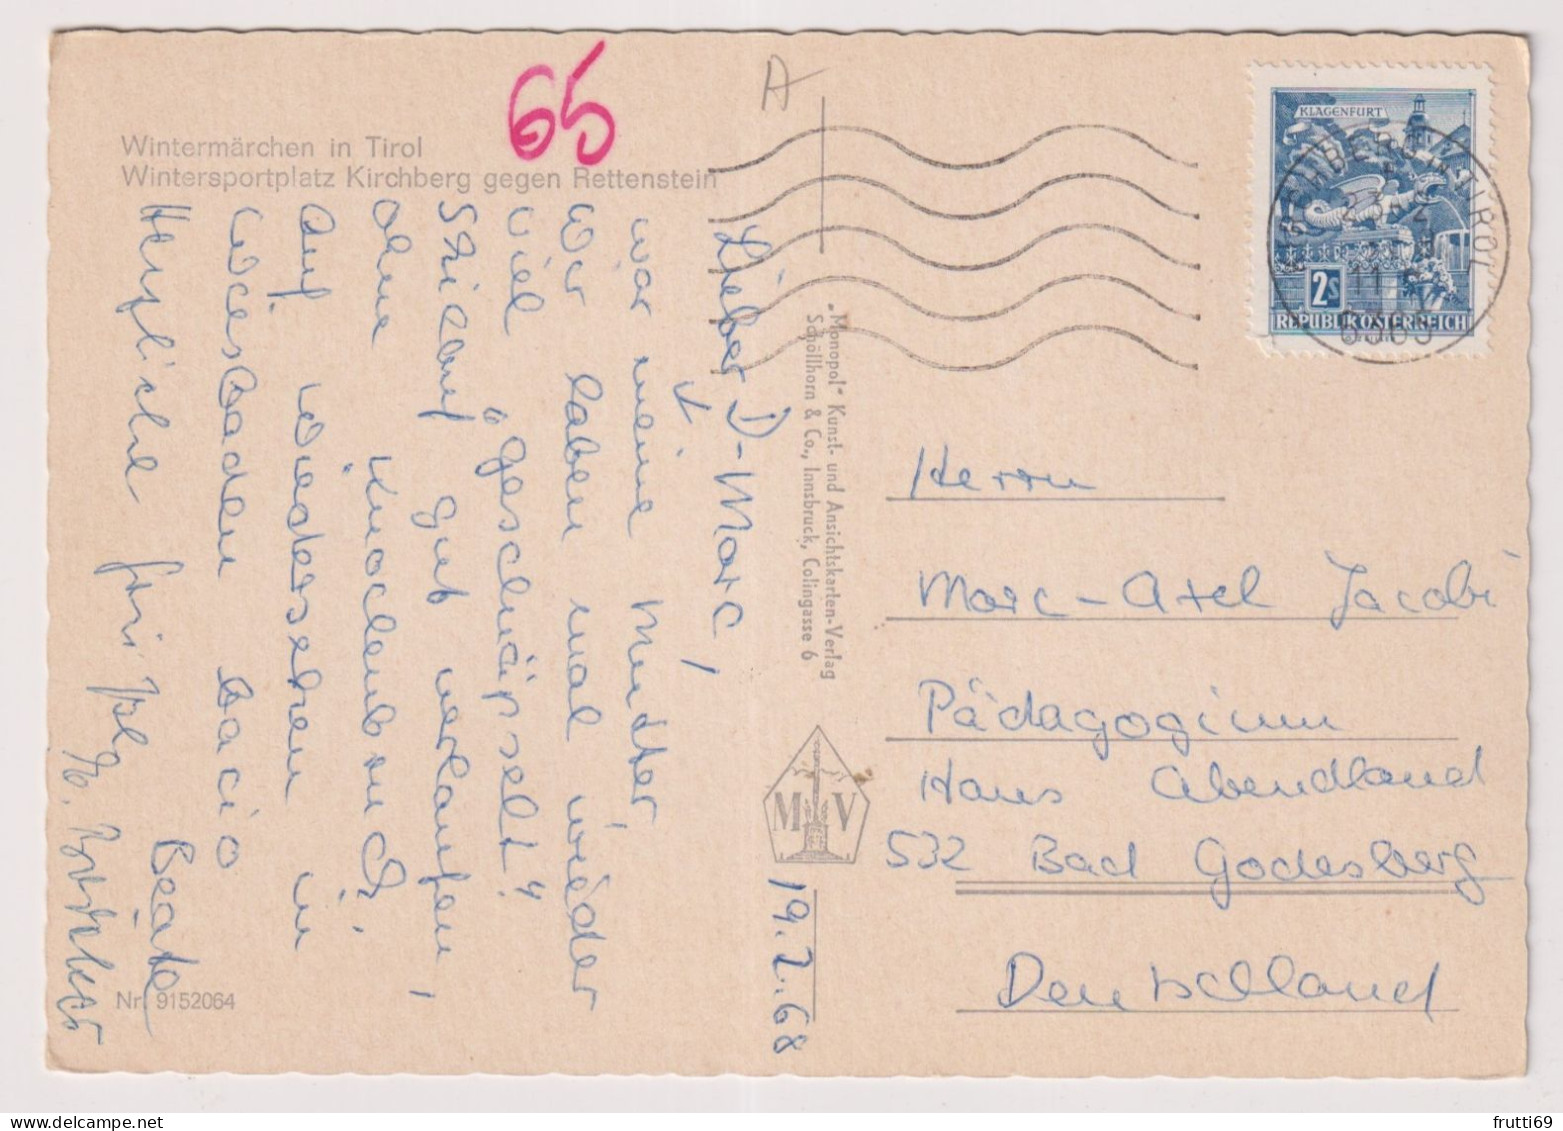 65
A
Wintermärchen in Tirol
Wintersportplatz Kirchberg gegen Rettenstein
KLAGENFURT
2S
REPUBLIK ÖSTERREICH
KIRCHBERG IN TIROL
23. 2
6365
Lieber D-Marc,
↓
war meine Mutter.
Wir haben mal wieder
viel "geschnäpselt"
Skilauf gut verlaufen,
ohne Knochenbruch.
Auf Wiedersehen in
Wiesbaden bacio
Beate
Herzliche
Nr. 9152064
19.2.68
"Monopol" Kunst- und Ansichtskarten-Verlag
Schöllhorn & Co., Innsbruck, Colingasse 6
M V
Herrn
Marc-Axel Jacobi
Pädagogium
Haus Abendland
532 Bad Godesberg
Deutschland
frutti69